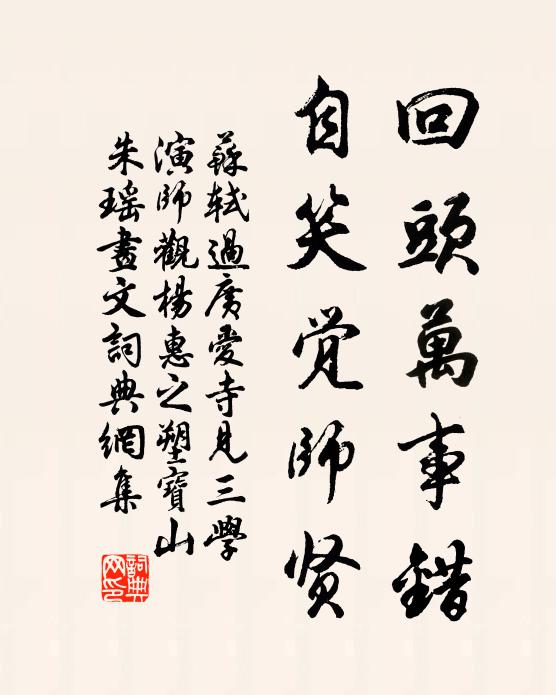 回頭萬事錯
自笑觉師贤
蘇軾過廣愛寺見三學
演師觀楊惠之塑寶山
朱瑶畫文詞典網集
詞典
网印